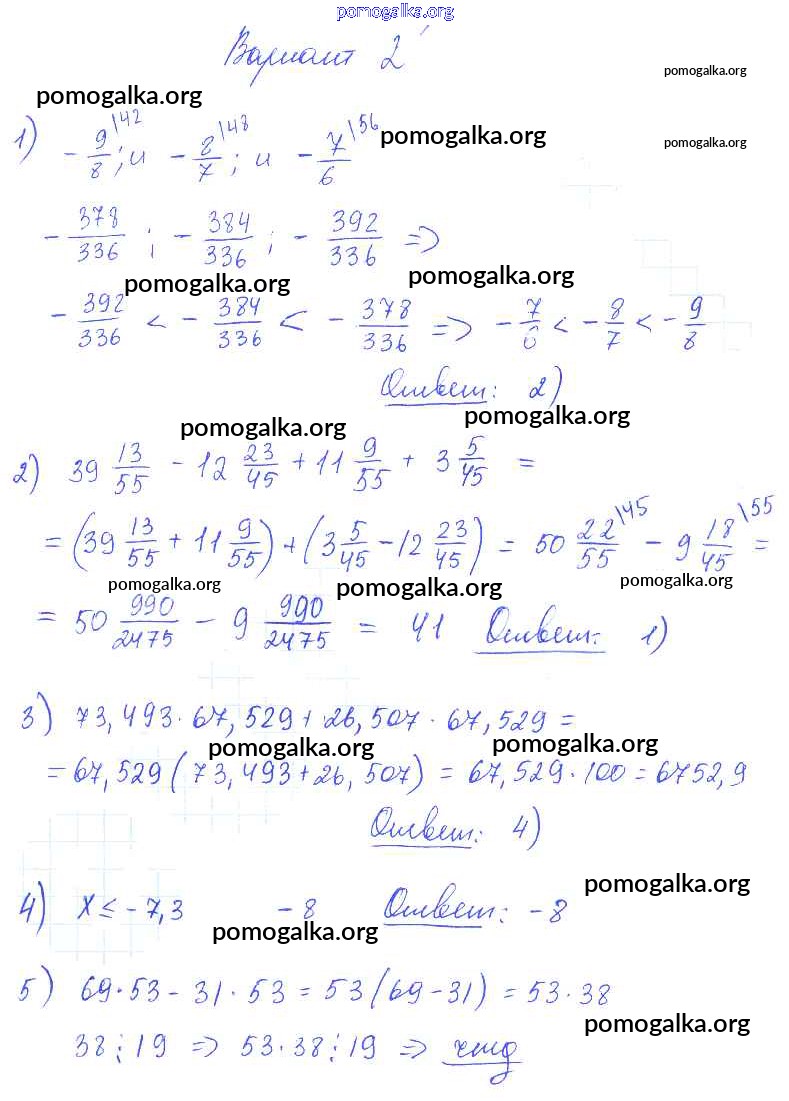 pomogalka.org
Вариант 2
pomogalka.org
pomogalka.org
1) -9/8 \42; и -8/7 \48; и -7/6 \56
pomogalka.org
pomogalka.org
-378/336 ; -384/336 ; -392/336 =>
pomogalka.org
pomogalka.org
-392/336 < -384/336 < -378/336 => -7/6 < -8/7 < -9/8
Ответ: 2)
pomogalka.org
pomogalka.org
2) 39 13/55 - 12 23/45 + 11 9/55 + 3 5/45 =
= (39 13/55 + 11 9/55) + (3 5/45 - 12 23/45) = 50 22/55 \45 - 9 18/45 \55 =
pomogalka.org
pomogalka.org
pomogalka.org
= 50 990/2475 - 9 990/2475 = 41 Ответ: 1)
3) 73,493 · 67,529 + 26,507 · 67,529 =
pomogalka.org
pomogalka.org
= 67,529 (73,493 + 26,507) = 67,529 · 100 = 6752,9
Ответ: 4)
pomogalka.org
4) x ≤ -7,3 -8 Ответ: -8
pomogalka.org
5) 69 · 53 - 31 · 53 = 53 (69 - 31) = 53 · 38
pomogalka.org
38 ⋮ 19 => 53 · 38 ⋮ 19 => чтд